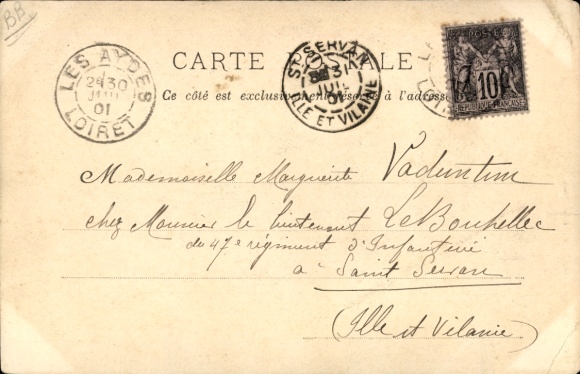 BB
CARTE POSTALE
Ce côté est exclusivement réservé à l'adresse
LES AYDES
2E 30
JUIL
01
LOIRET
ST SERVAN
31
JUIL
01
ILLE ET VILAINE
POSTES
10
REPUBLIQUE FRANÇAISE
Mademoiselle Marguerite
chez Monsieur le lieutenant Le Bouhellec
du 47e régiment d'Infanterie
à Saint Servan
(Ille et Vilaine)